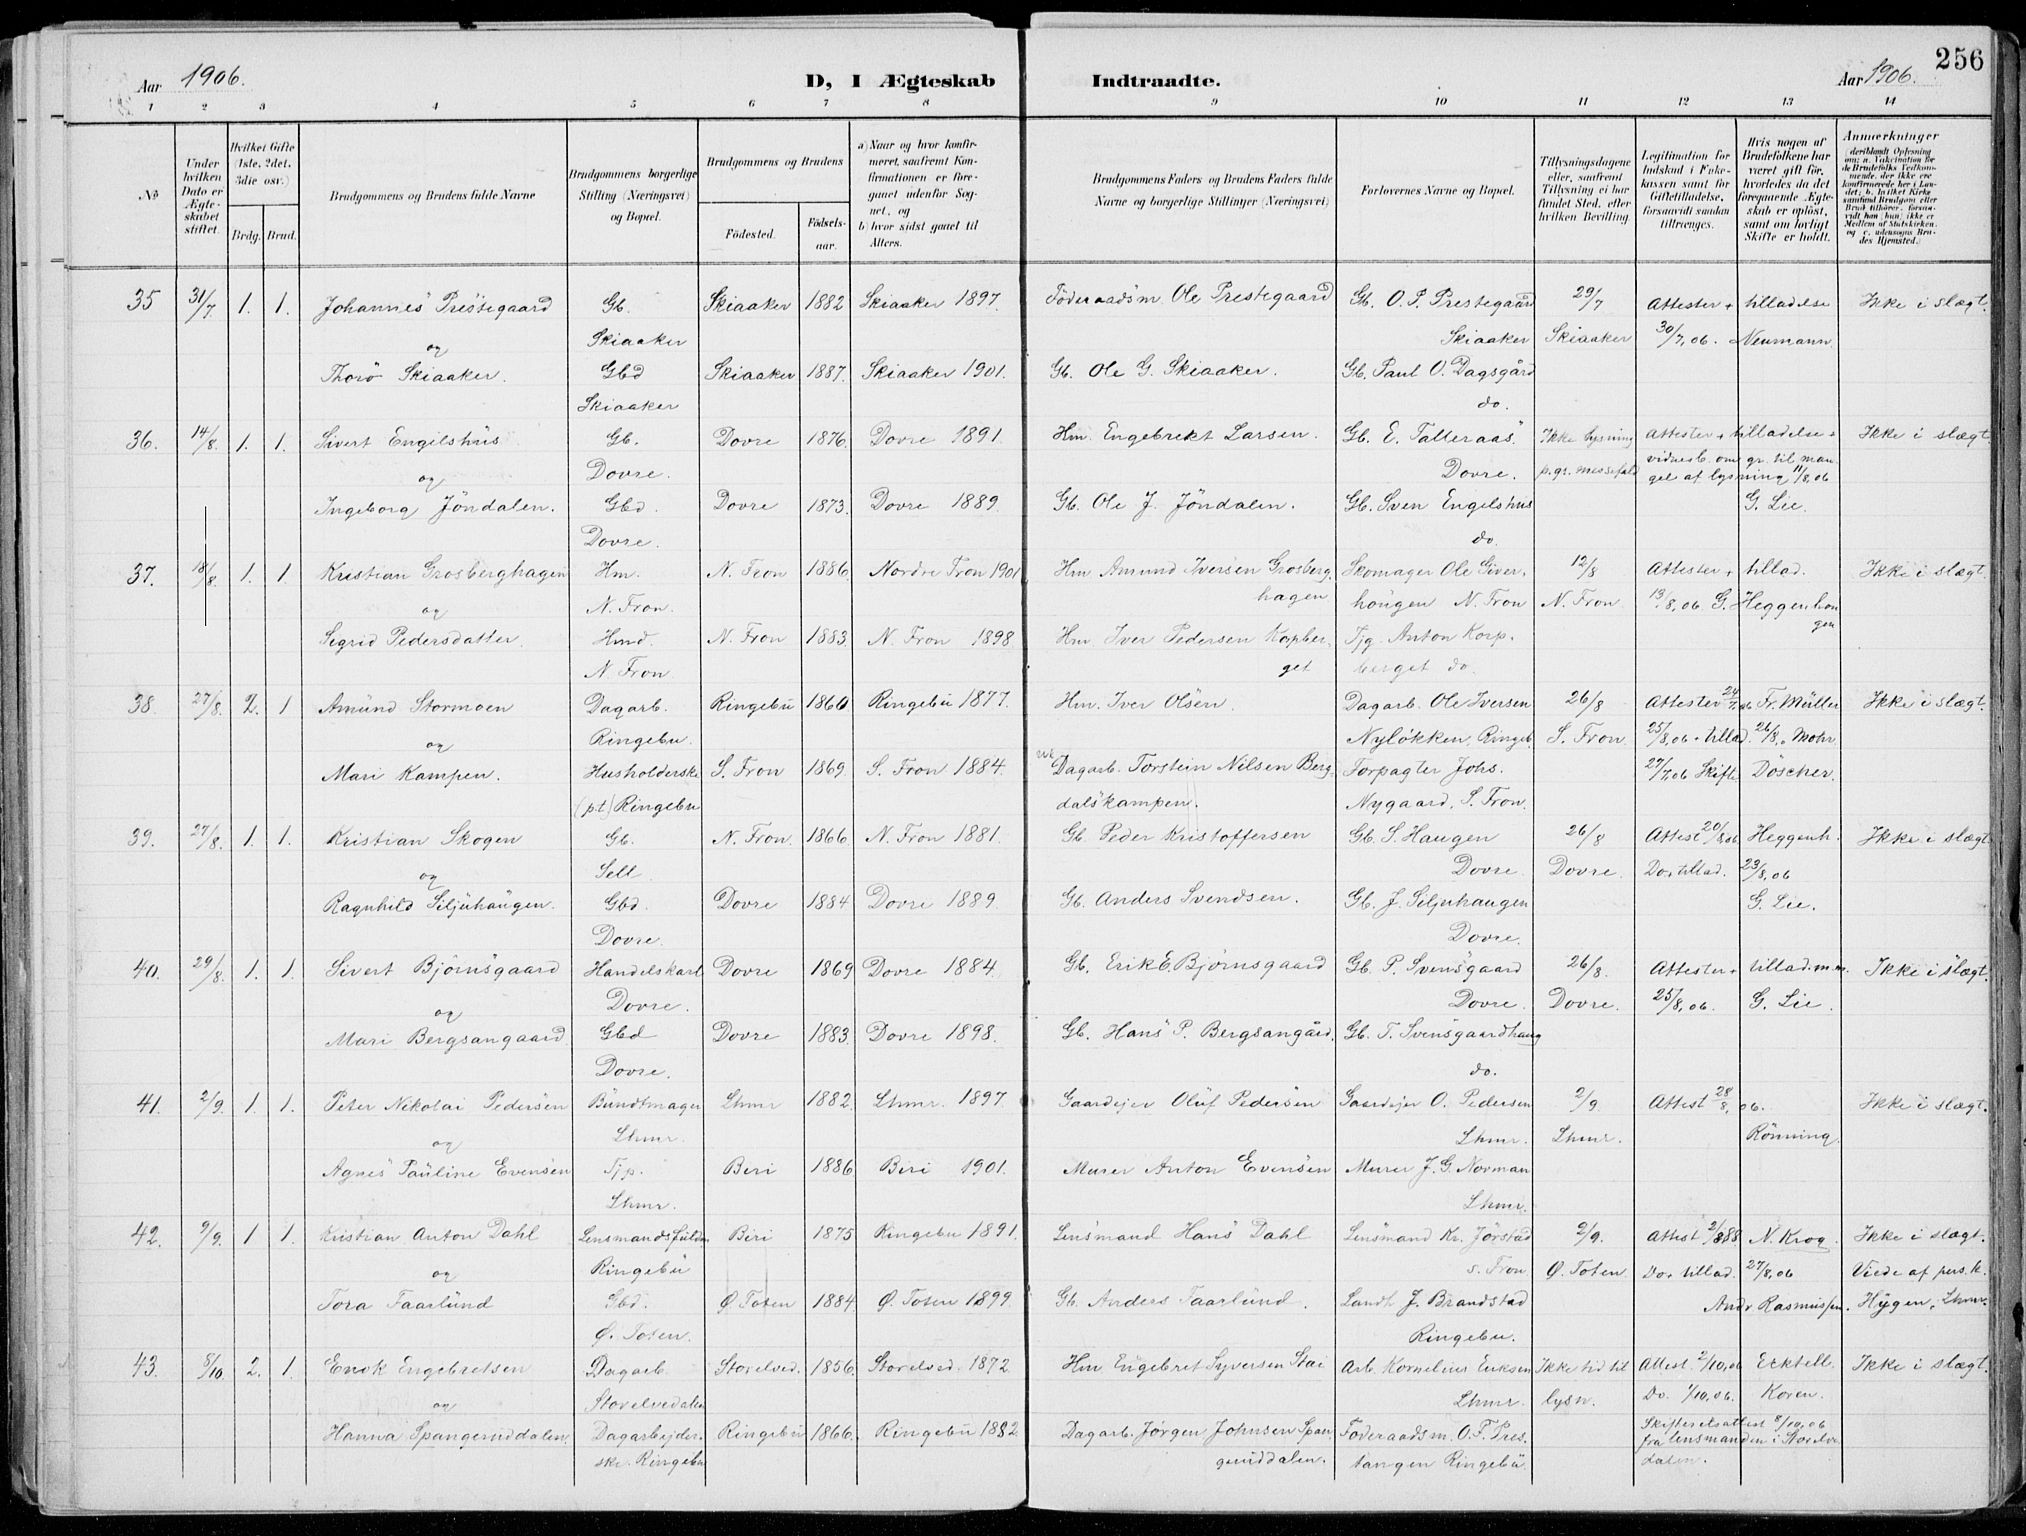 256
Aar 1906.
D, I Ægteskab Indtraadte.
Aar 1906.
1 2 3 4 5 6 7 8 9 10 11 12 13 14
No.
Under hvilken Dato er Ægteskabet stiftet.
Hvilket Gifte (1ste, 2det, 3die osv.)
Brdg. Brud.
Brudgommens og Brudens fulde Navne
Brudgommens borgerlige Stilling (Næringsvei) og Bopæl.
Brudgommens og Brudens
Fødested. Fødsels-aar.
a) Naar og hvor konfirmeret, saafremt Konfirmationen er foregaaet udenfor Sognet, og
b) hvor sidst gaaet til Alters.
Brudgommens Faders og Brudens Faders fulde Navne og borgerlige Stillinger (Næringsvei)
Forlovernes Navne og Bopæl.
Tillysningsdagene eller, saafremt Tillysning ei har fundet Sted, efter hvilken Bevilling.
Legitimation for Indskud i Enkekassen samt for Giftetilladelse, forsaavidt saadan tiltrænges.
Hvis nogen af Brudefolkene har været gift før, hvorledes da det foregaaende Ægteskab er opløst, samt om lovligt Skifte er holdt.
Anmærkninger
(deriblandt Oplysning om: a. Vakcination for de Brudefolks Vedkommende, der ikke ere konfirmerede her i Landet; b. hvilket Kirkesamfund Brudgom eller Brud tilhører, forsaavidt han (hun) ikke er Medlem af Statskirken, og c. udensogns Brudes Hjemsted.)
35 31/7 1. 1. Johannes Prestegaard Gb. Skiaaker 1882 Skiaaker 1897. Föderaadsm. Ole Prestegaard Gb. O. P. Prestegaard 29/7 Attester + tilladelse Ikke i slægt.
og Skiaaker Skiaaker Skiaaker 30/7,06. Neumann
Thorø Skiaaker. Gbd Skiaaker 1887. Skiaaker 1901. Gb. Ole G. Skiaaker. Gb. Paul O. Dagsgård
Skiaaker do.
36. 14/8. 1. 1. Sivert Engelshus Gb. Dovre 1876 Dovre 1891. Hm. Engebrekt Larsen. Gb. E. Talleraas. Ikke lysning Attester + tilladelse + Ikke i slægt.
og Dovre. Dovre. p.gr. messefald vidnesb. om gr. til mangel af lysning 11/8,06
Ingeborg Jöndalen. Gbd. Dovre 1873. Dovre 1889. Gb. Ole J. Jöndalen. Gb. Sven Engelshus G. Lie.
Dovre. do.
37. 18/8. 1. 1. Kristian Grosberghagen Hm. N. Fron 1886 Nordre Fron 1901 Hm Amund Iversen Grosberg- Skomager Ole Siver- 12/8 Attester + tillad. Ikke i slægt.
og N. Fron. hagen hougen N. Fron N. Fron 13/8,06 G. Heggenhougen
Segrid Pedersdatter. Hmd. N. Fron 1883. N. Fron 1898. Hm. Iver Pedersen Korpber- Tjg. Anton Korp-
N. Fron. get berget do.
38. 27/8. 2. 1 Amund Stormoen Dagarb. Ringebu 1860 Ringebu 1877. Hm. Iver Olsen. Dagarb. Ole Iversen 26/8 Attester 24/7.06 Fr. Müller Ikke i slægt.
og Ringebu. Nylökken, Ringeb. S. Fron. 25/8,06 + tillad. 26/8, Mohr
Mari Kampen. Husholderske S. Fron 1869. S. Fron 1884. Dagarb. Torstein Nilsen Berg- Forpagter Johs. 27/7,06 Skifte Döscher.
(p.t.) Ringebu dalskampen. Nygaard, S. Fron.
39. 27/8. 1. 1. Kristian Skogen Gb. N. Fron. 1866 N. Fron 1881. Gb. Peder Kristoffersen Gb. S. Haugen 26/8 Attest 20/8,06 Heggenh. Ikke i slægt.
og Sell. Dovre. Dovre. Do + tillad. 23/8,06
Ragnhild Siljuhaugen. Gbd. Dovre 1884 Dovre 1889. Gb. Anders Svendsen. Gb. J. Siljuhaugen G. Lie.
Dovre. Dovre.
40. 29/8. 1. 1. Sivert Bjørnsgaard Handelskarl Dovre 1869 Dovre 1884. Gb. Erik E. Bjørnsgaard Gb. P. Svensgaard 26/8. Attester + tillad. m.m. Ikke i slægt.
og Dovre. Dovre. Dovre. 25/8,06. G. Lie.
Mari Bergsangaard Gbd Dovre 1883. Dovre 1898. Gb. Hans P. Bergsangård. Gb. T. Svensgaardhaug
Dovre. do.
41. 2/9. 1. 1. Peter Nikolai Pedersen Bundtmager Lhmr 1882 Lhmr. 1897. Gaardejer Oluf Pedersen Gaardejer O. Pedersen 2/9 Attest 28/8, 06. Ikke i slægt.
og Lhmr. Lhmr. Lhmr. Rönning
Agnes Pauline Evensen Tjp. Beri 1886 Beri 1901. Murer Anton Evensen Murer J. G. Norman
Lhmr. Lhmr.
42. 9/9. 1 1. Kristian Anton Dahl Lensmandsfuldm Biri 1875 Ringebu 1891. Lensmand Hans Dahl Lensmand Kr. Jörstad 2/9. Attest 2/8 88 N. Krog. Ikke i slægt.
og Ringebu s. Fron Ø. Toten. Do + tillad. 27/8,06 Viede af pers. k.
Tora Faarlund Gbd. Ø. Toten 1884. Ø. Toten 1899. Gb. Anders Faarlund. Landh J. Brandstad Andr Rasmussen. Hygen, Lhmr.
Ø. Toten. Ringebu.
43. 8/10. 2. 1. Enok Engebretsen Dagarb. Storelved. 1856. Storelved. 1872 Hm Engebret Syversen Stai Arb. Kornelius Eriksen Ikke tid til Attest. 2/10,06 Ecktell. Ikke i slægt.
og Storelvedalen Lhmr. lysn. Do. 1/10,06. Koren.
Hanna Spangeruddalen. Dagarbejder- Ringebu 1866. Ringebu 1882 Dagarb. Jørgen Johnsen Span- Föderaadsm. O. F. Pres- Skifteretsattest 8/10,06
ske. Ringebu geruddalen. tangen Ringebu. fra lensmanden i Storelvedalen.